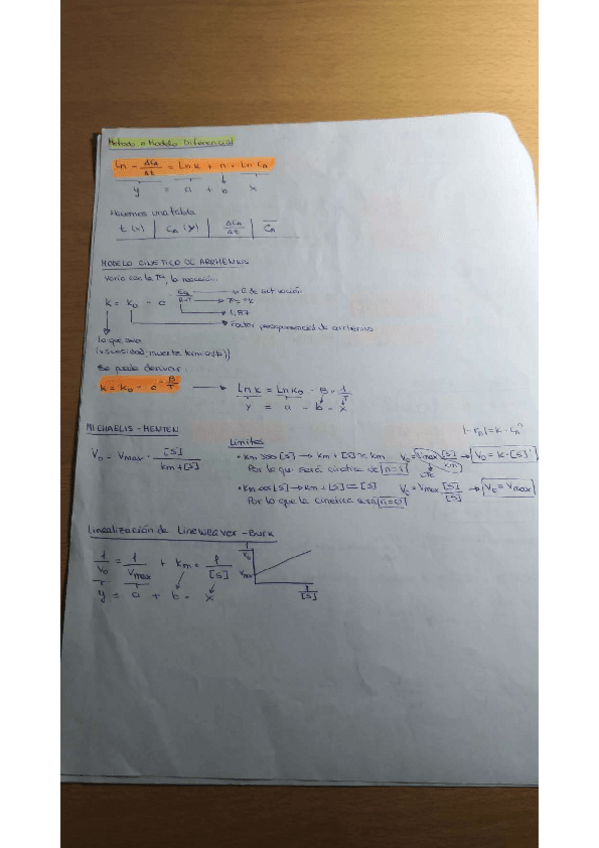 Metodo o Modelo Diferencial
Ln - ΔCA/Δt = Ln k + n · Ln CA
y = a + b x
Hacemos una tabla
t (h) | CA (y) | ΔCA/Δt | C̅A
MODELO CINETICO DE ARRHENIUS
varia con la Tª, la reacción.
k = k0 · e Ea/R·T → E de activación
Tª = K
1,87
Factor preexponencial de arrhenius
lo que sea
Se puede derivar:
k = k0 · e - B/T → Ln k = Ln k0 - B · 1/T
y = a - b · x
MICHAELIS-MENTEN
|-rA| = k · CA^n
V0 = Vmax · [S]/km+[S]
Limites
• km >>> [S] → km + [S] ≈ km V0 = Vmax [S]/km → V0 = k·[S]¹
Por lo que será cinética de n=1
• km <<< [S] → km + [S] ≈ [S] V0 = Vmax [S]/[S] → V0 = Vmax
Por lo que la cinetica será n=0
Linealización de Lineweaver-Burk
1/V0 = 1/Vmax + km = 1/[S]
y = a + b = x
1/V0
Vmax
1/[S]